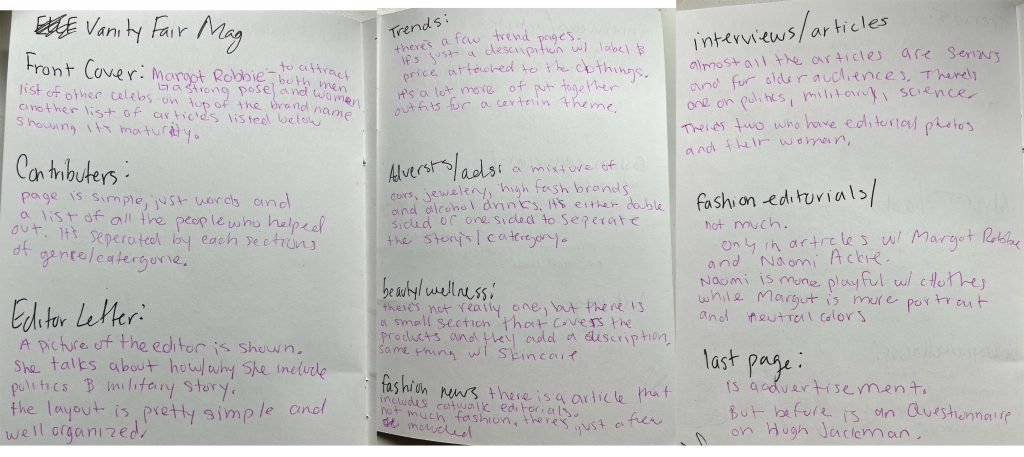 Vanity Fair Mag
Front Cover: Margot Robbie - to attract
both men
and women
↳ a strong pose
list of other celebs on top of the brand name
another list of articles listed below
showing its maturity.
Contributers:
page is simple, just words and
a list of all the people who helped
out. It's seperated by each sections
of genre/catergorie.
Editor Letter:
A picture of the editor is shown.
She talks about how/why she include
politics & military story.
the layout is pretty simple and
well organized.
Trends:
there's a few trend pages.
it's just a description w/ label &
price attached to the clothings.
It's a lot more of put together
outfits for a certain theme.
Adversts/ads: a mixture of
cars, jewelery, high fash brands
and alcohol drinks. It's either double
sided or one sided to seperate
the story's/catergory.
beauty/wellness:
there's not really one, but there is
a small section that covers the
products and they add a description.
same thing w/ skincare
fashion news there is a article that
includes catwalk editorials.
not much fashion, there's just a few
included
interviews/articles
almost all the articles are serious
and for older audiences. There's
one on politics, military, science.
There's two who have editorial photos
and their woman.
fashion editorials/
not much.
only in articles w/ Margot Robbie
and Naomi Ackie.
Naomi is more playful w/ clothes
while Margot is more portrait
and neutral colors
last page:
Is a advertisement.
But before is an Questionnaire
on Hugh Jackman.